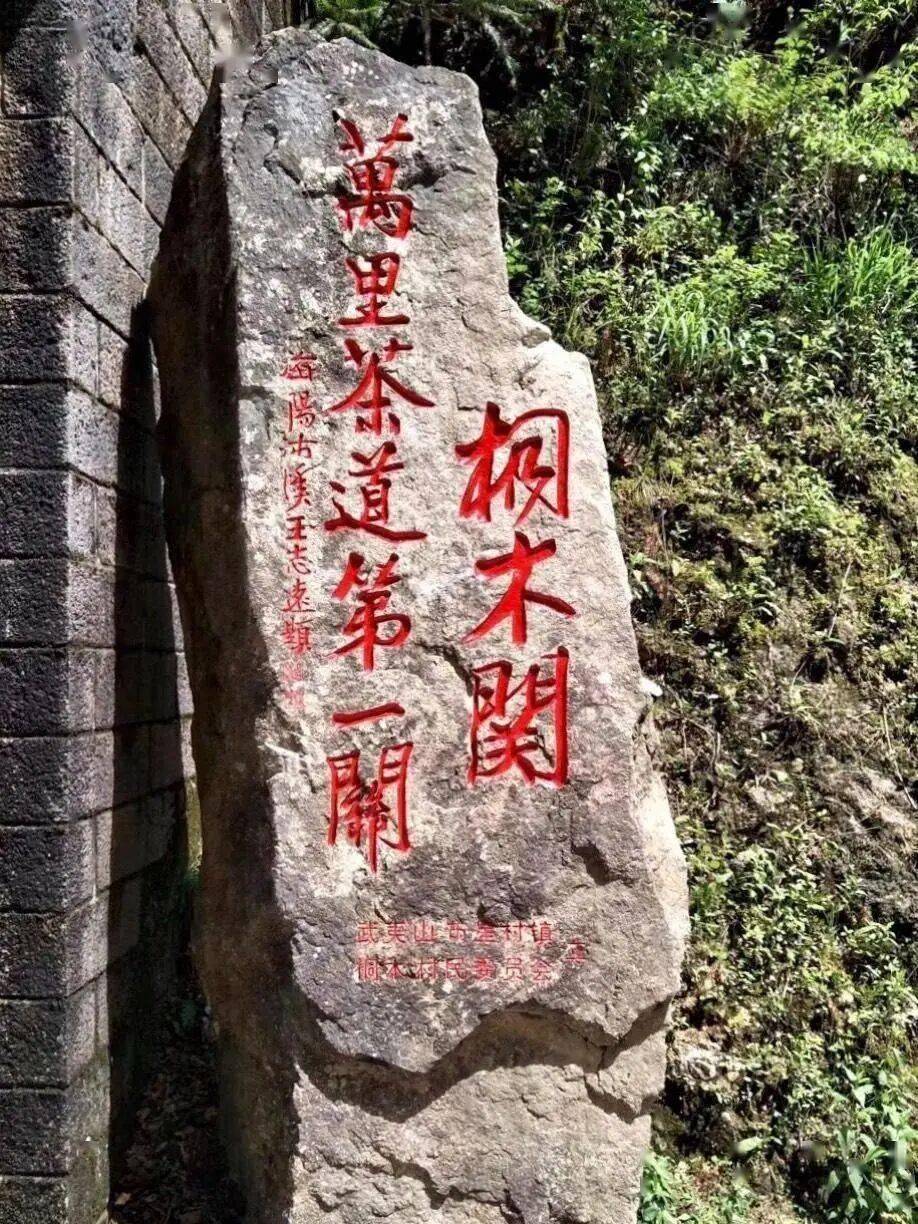 桐木関
萬里茶道第一關
陽 溪王志遠題
武夷山市星村镇
桐木村民委员会
立